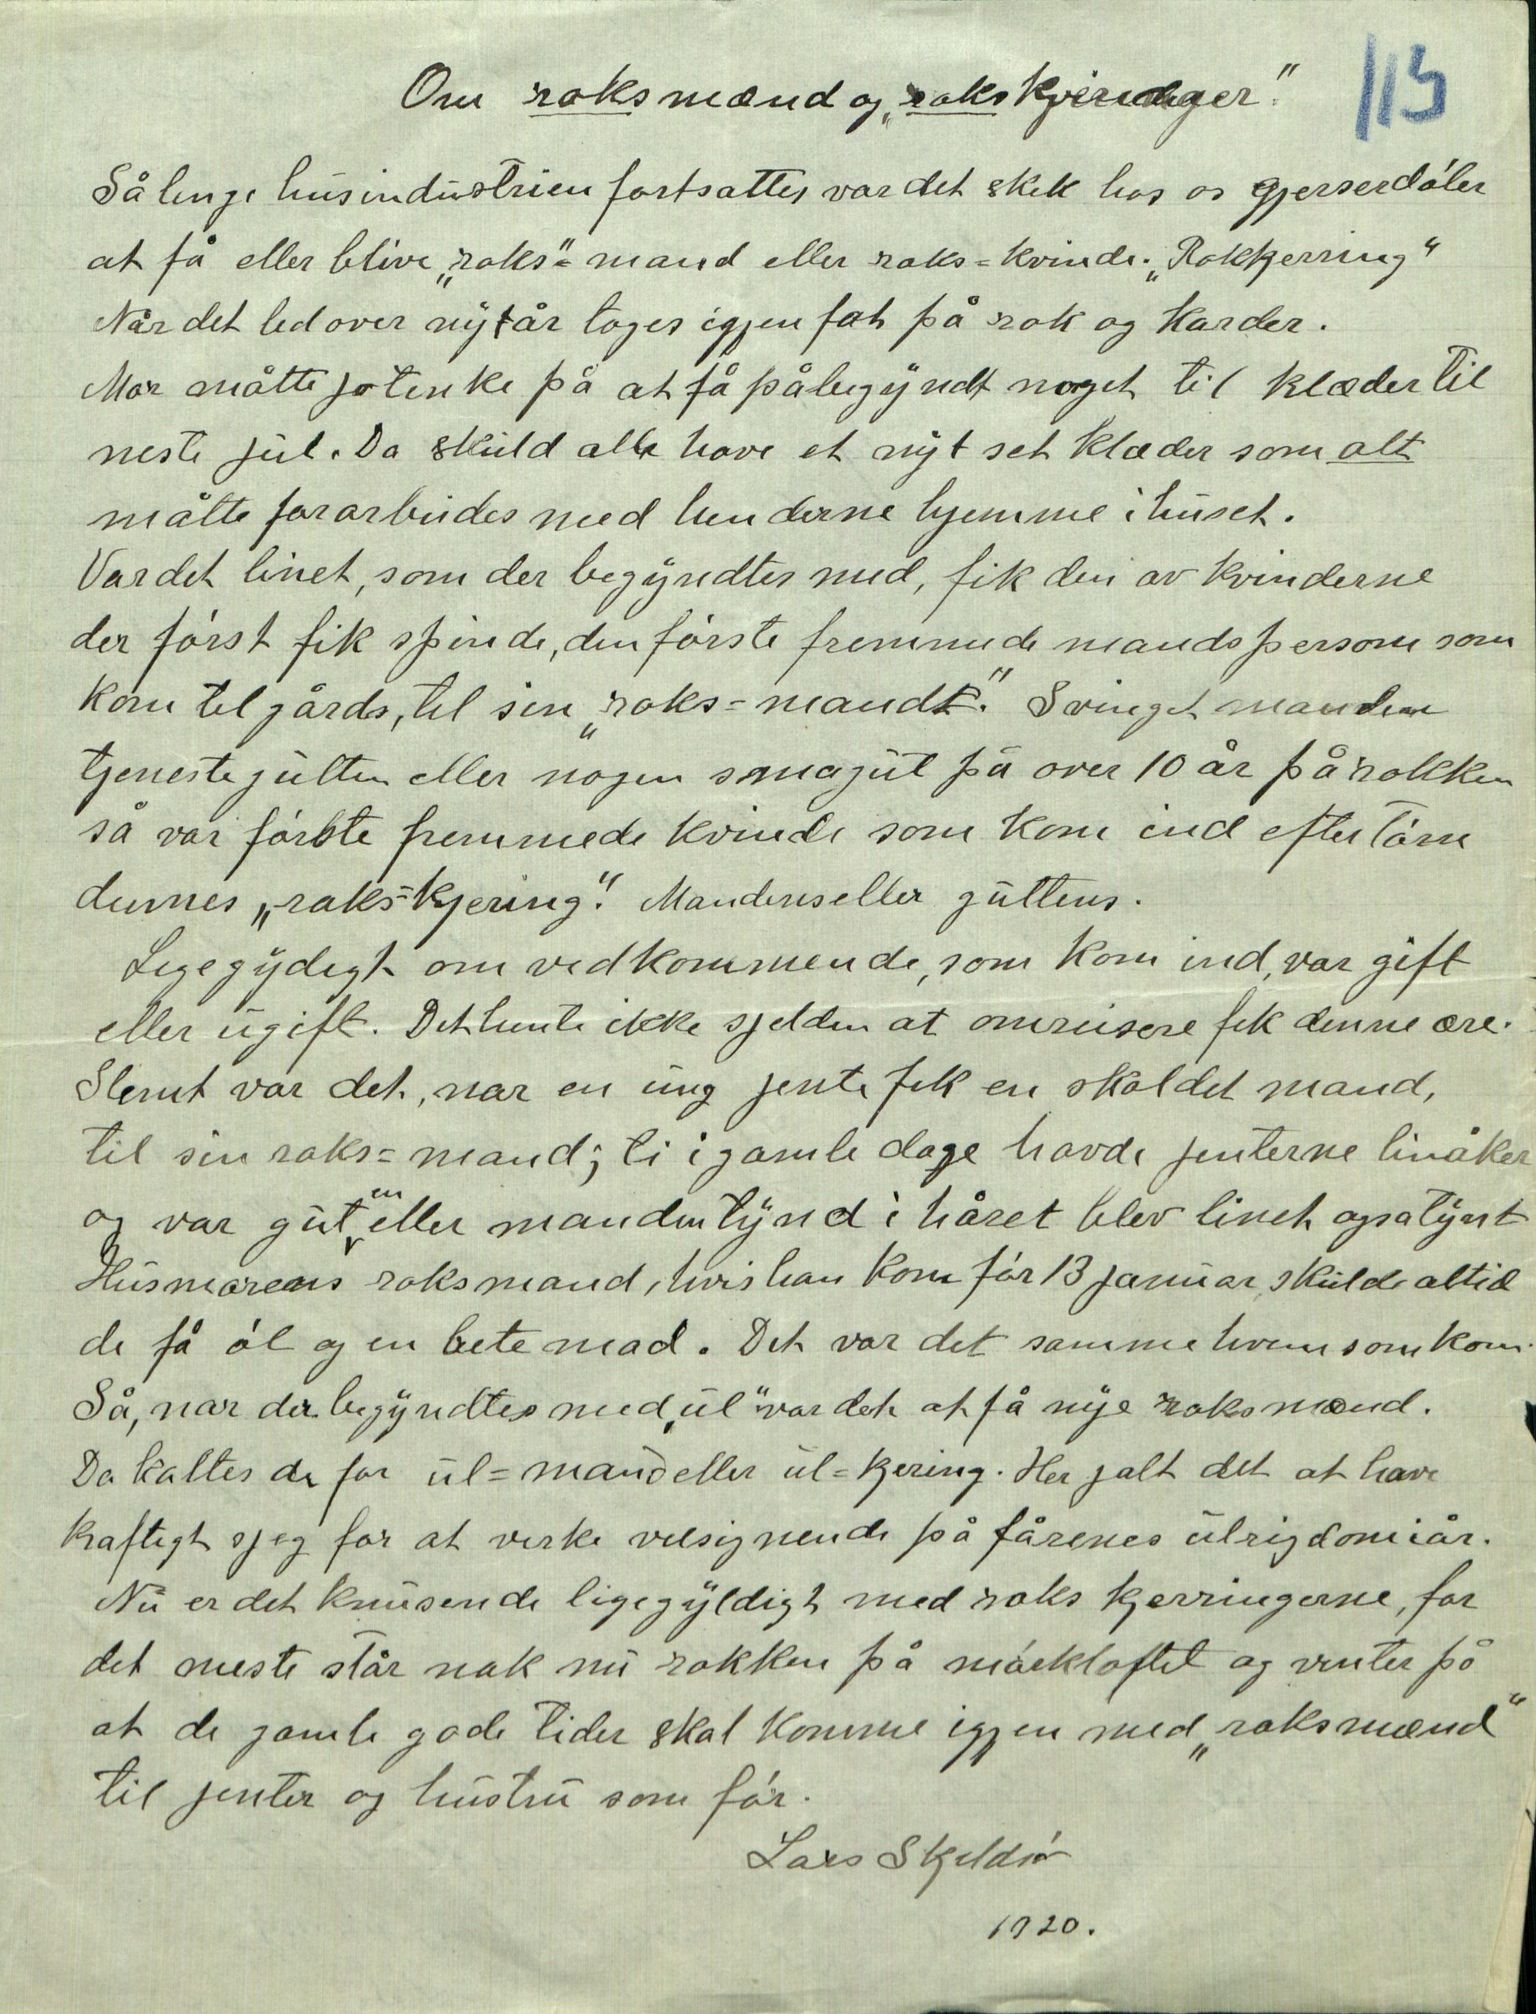 Om roksmænd og „rokskjerringer"
113
Så lenge husindustrien fortsattes var det skik hos os gjerserdøler
at få eller blive „roks"=mand eller roks=kvinde. „Rokkjerring"
Når det led over nytår toges igjen fat på rok og karder.
Mor måtte jo tenke på at få påbegyndt noget til klæder til
neste jul. Da skuld alle have et nyt set klæder som alt
måtte forarbeides med henderne hjemme i huset.
Var det linet, som der begyndtes med, fik den av kvinderne
der først fik spinde, den første fremmede mandsperson som
kom til gårds, til sin „roks=mand". Svinget manden
tjenestegutten eller nogen smagut på over 10 år på rokken
så var første fremmede kvinde som kom ind efter tørn
dennes „roks=kjering". Mandens eller guttens.
Ligegydigt om vedkommende, som kom ind, var gift
eller ugift. Det hente ikke sjelden at omreisere fik denne ære.
Slemt var det, nar en ung jente fik en skaldet mand,
til sin roks=mand; ti i gamle dage havde jenterne linåker
og var guten eller manden tynd i håret blev linet ogsa tynt
Husmorens roksmand, hvis han kom før 13 januar, skulde altid
de få øl og en bete mad. Det var det samme hvem som kom.
Så, nar der begyndtes med „ul" var det at få nye roksmænd.
Da kaltes de for ul=mand eller ul=kjering. Her jalt det at have
kraftigt sjeg for at virke velsignende på fårenes ulrigdom i år.
Nu er det knusende ligegyldigt med roks kjerringerne, for
det meste står nok nu rokken på mørkloftet og venter på
at de gamle gode tider skal komme igjen med „roksmænd"
til jenter og hustru som før.
Lars Skjeldsør
1920.